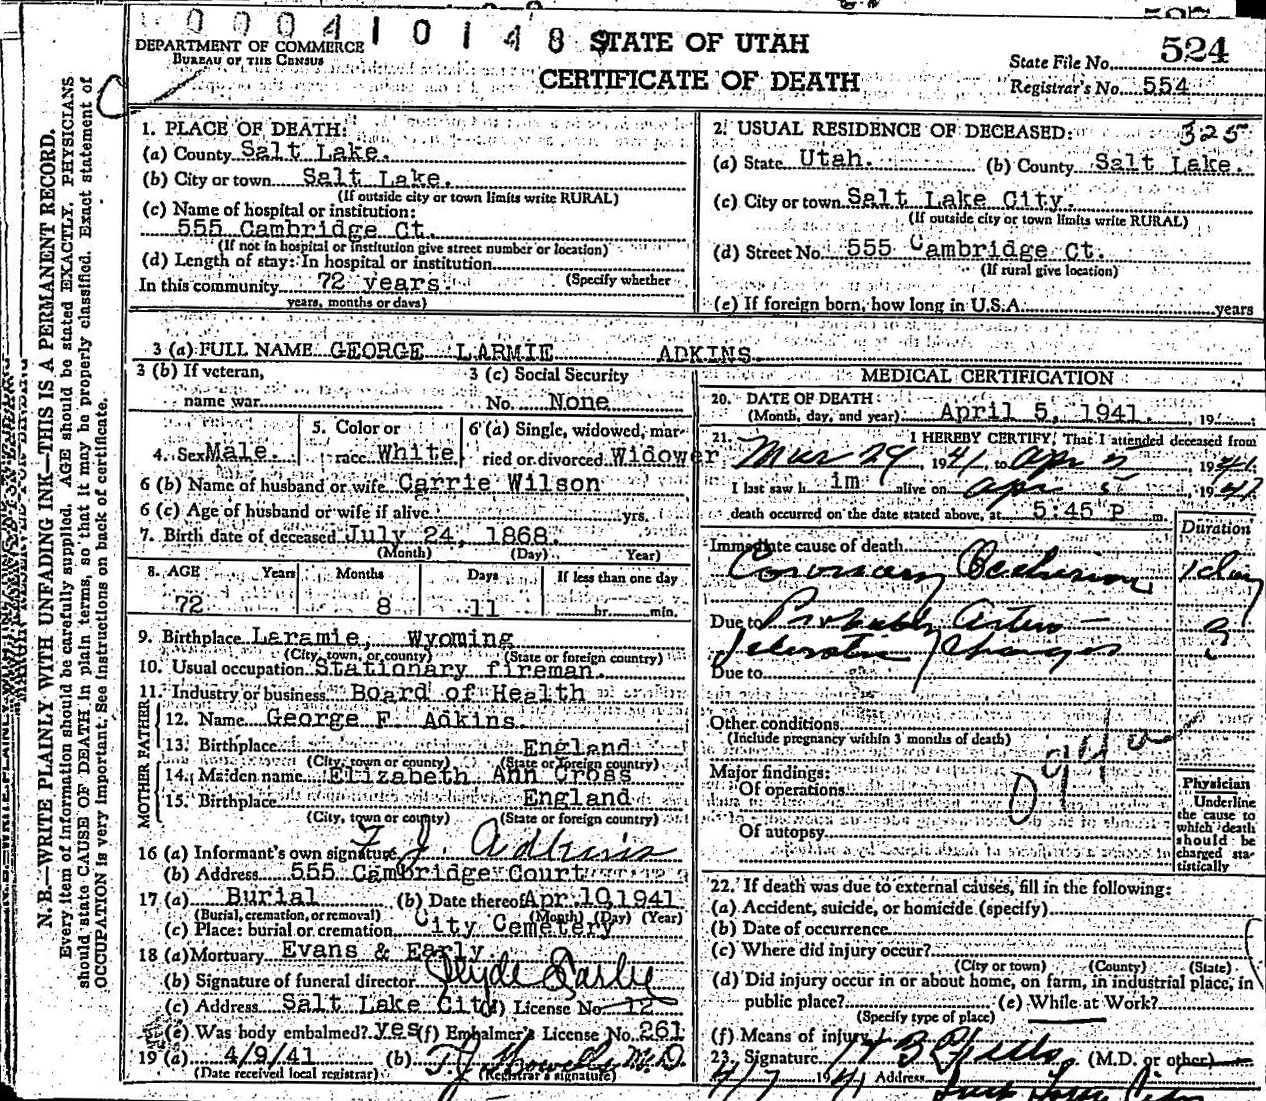 0 0 0 4 1 0 1 4 8
DEPARTMENT OF COMMERCE
BUREAU OF THE CENSUS
STATE OF UTAH
CERTIFICATE OF DEATH
State File No. 524
Registrar's No. 554
N. B.—WRITE PLAINLY WITH UNFADING INK—THIS IS A PERMANENT RECORD.
Every item of information should be carefully supplied. AGE should be stated EXACTLY. PHYSICIANS
should state CAUSE OF DEATH in plain terms, so that it may be properly classified. Exact statement of
OCCUPATION is very important. See instructions on back of certificate.
1. PLACE OF DEATH:
(a) County Salt Lake.
(b) City or town Salt Lake.
(If outside city or town limits write RURAL)
(c) Name of hospital or institution:
555 Cambridge Ct.
(If not in hospital or institution give street number or location)
(d) Length of stay: In hospital or institution
(Specify whether
In this community 72 years.
years, months or days)
2. USUAL RESIDENCE OF DECEASED: 325
(a) State Utah. (b) County Salt Lake.
(c) City or town Salt Lake City.
(If outside city or town limits write RURAL)
(d) Street No. 555 Cambridge Ct.
(If rural give location)
(e) If foreign born, how long in U.S.A. years
3 (a) FULL NAME GEORGE LARMIE ADKINS.
3 (b) If veteran,
name war
3 (c) Social Security
No. None
4. Sex Male.
5. Color or
race White
6 (a) Single, widowed, mar-
ried or divorced Widower
6 (b) Name of husband or wife Carrie Wilson
6 (c) Age of husband or wife if alive yrs.
7. Birth date of deceased July 24, 1868.
(Month) (Day) Year)
8. AGE Years Months Days If less than one day
72 8 11 hr. min.
9. Birthplace Laramie, Wyoming
(City, town, or county) (State or foreign country)
10. Usual occupation Stationary fireman.
11. Industry or business Board of Health
FATHER
12. Name George F. Adkins.
13. Birthplace England
(City, town or county) (State or foreign country)
MOTHER
14. Maiden name Elizabeth Ann Cross
15. Birthplace England
(City, town or county) (State or foreign country)
16 (a) Informant's own signature F. J. Adkins
(b) Address 555 Cambridge Court
17 (a) Burial (b) Date thereof Apr. 10, 1941
(Burial, cremation, or removal) (Month) (Day) (Year)
(c) Place: burial or cremation City Cemetery
18 (a) Mortuary Evans & Early
(b) Signature of funeral director Clyde Earle
(c) Address Salt Lake City (d) License No. 12
(e) Was body embalmed? yes (f) Embalmer's License No. 261
19 (a) 4/9/41 (b) T. J. Howells M.D.
(Date received local registrar) (Registrar's signature)
MEDICAL CERTIFICATION
20. DATE OF DEATH:
(Month, day, and year) April 5, 1941. , 19
21. I HEREBY CERTIFY, That I attended deceased from
Mar 29 1941, to Apr 5, 1941.
I last saw him alive on Apr 5, 1941
death occurred on the date stated above, at 5:45 P m.
Duration
Immediate cause of death
Coronary Occlusion 1 day
Due to Probably Arterio- ?
sclerotic Changes
Due to
Other conditions
(Include pregnancy within 3 months of death)
094a
Major findings:
Of operations
Of autopsy
Physician
Underline
the cause to
which death
should be
charged sta-
tistically
22. If death was due to external causes, fill in the following:
(a) Accident, suicide, or homicide (specify)
(b) Date of occurrence
(c) Where did injury occur?
(City or town) (County) (State)
(d) Did injury occur in or about home, on farm, in industrial place, in
public place? (e) While at Work?
(Specify type of place)
(f) Means of injury
23. Signature (M.D. or other)
4/7 1941 Address